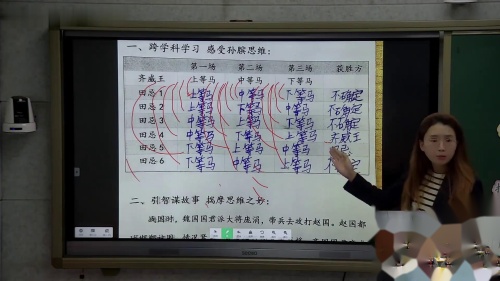 一、跨学科学习 感受孙膑思维：
第一场 第二场 第三场 获胜方
齐威王 上等马 中等马 下等马
田忌1 上等马 中等马 下等马 不确定
田忌2 上等马 下等马 中等马 不确定
田忌3 中等马 上等马 下等马 不确定
田忌4 中等马 下等马 上等马 齐威王
田忌5 下等马 上等马 中等马
田忌6 下等马 中等马 上等马 定
二、引智谋故事 揣摩思维之妙：
魏国国君派大将庞涓，带兵去攻打赵国。赵国都